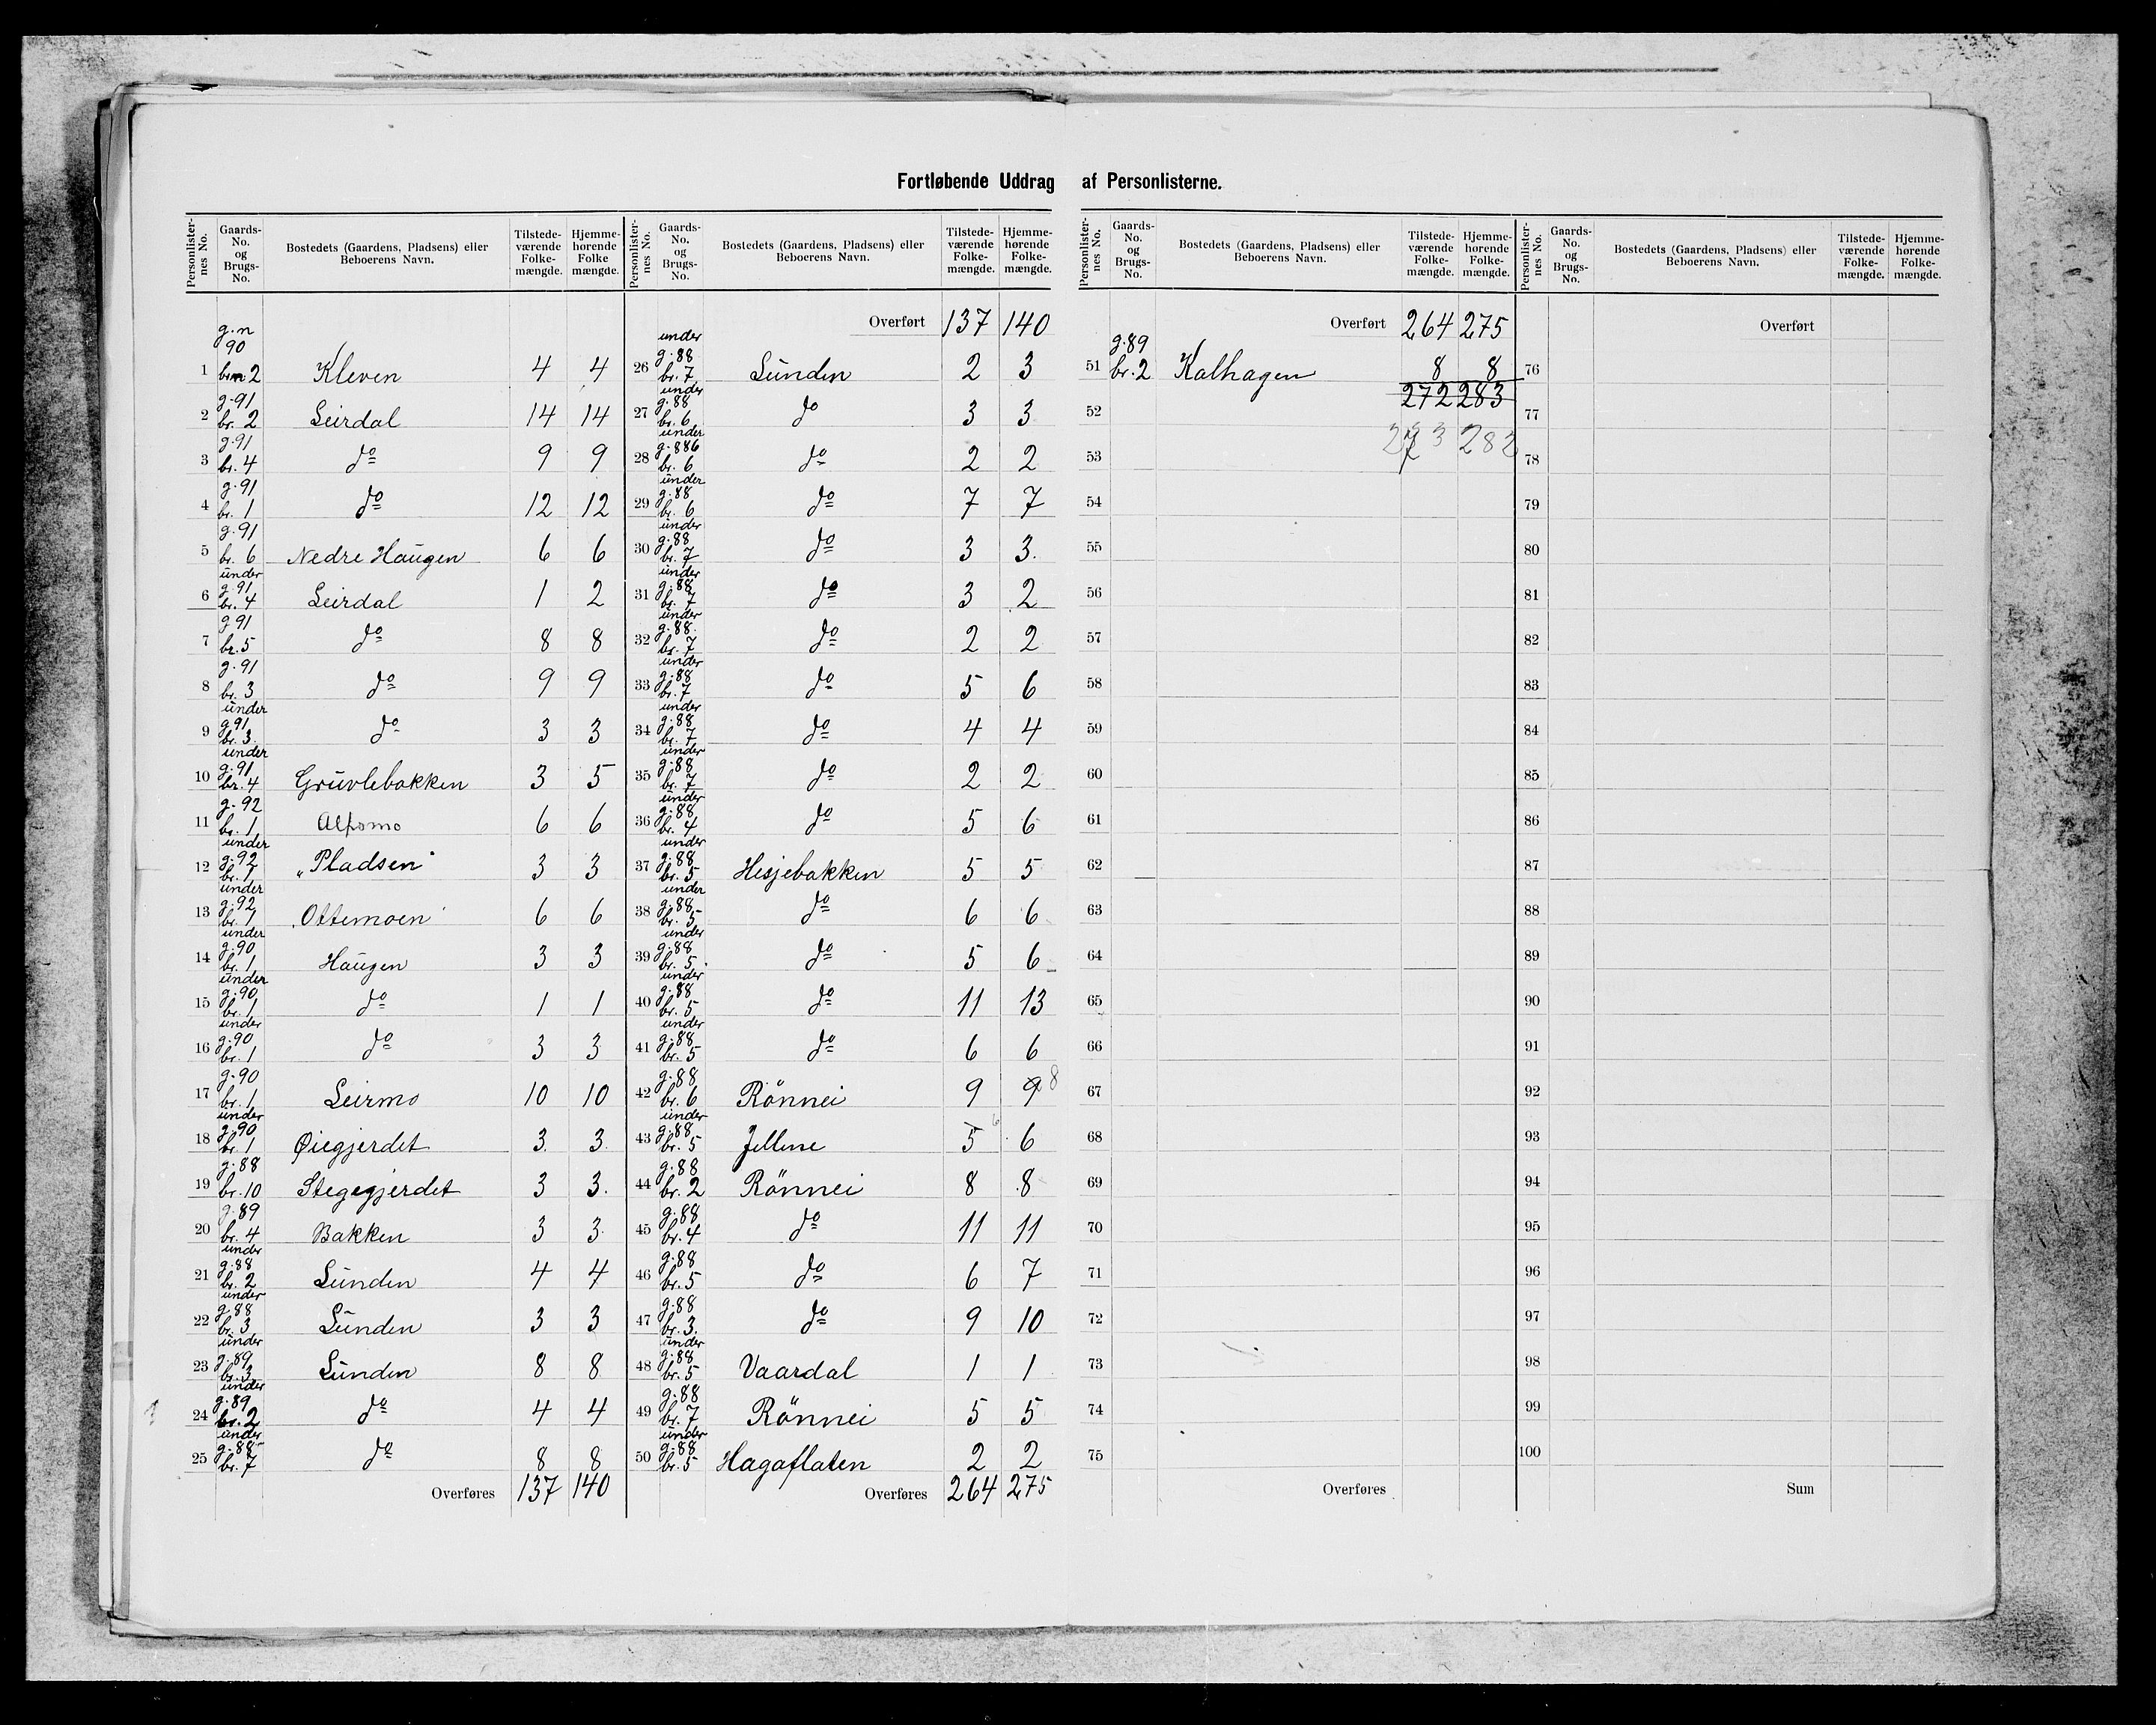 Fortløbende Uddrag af Personlisterne.
Personlister-nes No. | Gaards-No. og Brugs-No. | Bostedets (Gaardens, Pladsens) eller Beboerens Navn. | Tilstede-værende Folke-mængde. | Hjemme-hørende Folke mængde.
1 g.n 90 brn. 2 Kleven 4 4
2 g. 91 br. 2 Leirdal 14 14
3 g. 91 br. 4 do 9 9
4 g. 91 br. 1 do 12 12
5 g. 91 br. 6 Nedre Haugen 6 6
6 under g. 91 br. 4 Leirdal 1 2
7 g 91 br. 5 do 8 8
8 g. 91 br. 3 do 9 9
9 under g 91 br. 3. do 3 3
10 under g. 91 br. 4 Gruvlebakken 3 5
11 g. 92 br. 1 Alsmo 6 6
12 under g. 92 br. 1 "Pladsen" 3 3
13 under g. 92 br. 1 Ottemoen 6 6
14 under g. 90 br. 1 Haugen 3 3
15 under g. 90 br. 1 do 1 1
16 under g. 90 br. 1 do 3 3
17 g. 90 br. 1 Leirmo 10 10
18 under g. 90 br. 1 Øiegjerdet 3 3
19 g. 88 br. 10 Stegegjerdet 3 3.
20 g. 89 br. 4 Bakken 3 3
21 under g. 88 br. 2 Lunden 4 4
22 under g. 88 br. 3 Lunden 3 3
23 under g. 89 br. 3 Lunden 8 8
24 under g. 89 br. 2 do 4 4
25 under g. 88 br. 7 do 8 8
Overføres 137 140
Personlister-nes No. | Gaards-No. og Brugs-No. | Bostedets (Gaardens, Pladsens) eller Beboerens Navn. | Tilstede-værende Folke-mængde. | Hjemme-hørende Folke-mængde.
Overført 137 140
26 under g. 88 br. 7 Lunden 2 3
27 under g. 88 br. 6 do 3 3
28 under g. 886 br. 6 do 2 2
29 under g. 88 br. 6 do 7 7
30 under g. 88 br. 7 do 3 3.
31 under g. 88 br. 7 do 3 2
32 under g. 88. br. 7 do 2 2
33 under g. 88 br. 7 do 5 6
34 under g. 88 br. 7 do 4 4
35 under g. 88 br. 7 do 2 2
36 under g. 88 br. 4 do 5 6
37 under g. 88 br. 5 Hesjebakken 5 5
38 under g. 88 br. 5 do 6 6
39 under g. 88 br. 5. do 5 6
40 under g. 88 br. 5 do 11 13
41 under g. 88 br. 5 do 6 6
42 g. 88 br. 6 Rönnei 9 9 8
43 under g. 88 br. 5 Jellene 5 6 6
44 g. 88 br. 2 Rönnei 8 8
45 g. 88 br. 4 do 11 11
46 g. 88 br. 5 do 6 7
47 g. 88 br. 3. do 9 10
48 under g. 88 br. 5 Vaardal 1 1
49 g. 88 br. 7 Rönnei 5 5
50 under g. 88 br. 5 Hagaflaten 2 2
Overføres 264 275
Personlister-nes No. | Gaards-No. og Brugs-No. | Bostedets (Gaardens, Pladsens) eller Beboerens Navn. | Tilstede-værende Folke-mængde. | Hjemme-hørende Folke-mængde.
Overført 264 275
51 g. 89 br. 2 Kalhagen 8 8
52 272 283
53 273 282
54
55
56
57
58
59
60
61
62
63
64
65
66
67
68
69
70
71
72
73
74
75
Overføres
Personlister-nes No. | Gaards-No. og Brugs-No. | Bostedets (Gaardens, Pladsens) eller Beboerens Navn. | Tilstede-værende Folke-mængde. | Hjemme-hørende Folke-mængde.
Overført
76
77
78
79
80
81
82
83
84
85
86
87
88
89
90
91
92
93
94
95
96
97
98
99
100
Sum